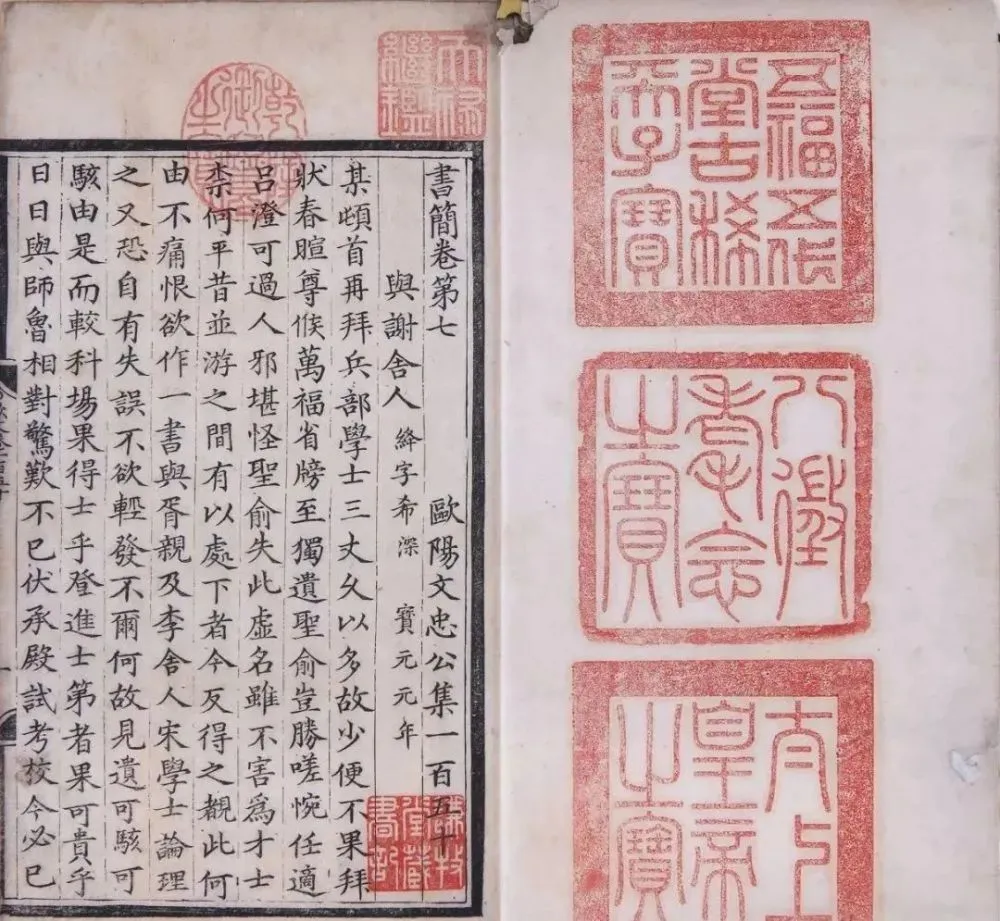 五福五代
堂古稀
天子寶
八徵
耄念
之寶
太上
皇帝
之寶
天祿
繼鑑
乾隆
御覽
之寶
書簡卷第七 歐陽文忠公集一百五十
與謝舍人 絳字希深 寶元元年
某頓首再拜兵部學士三丈久以多故少便不果拜
狀春暄尊候萬福省牓至獨遺聖俞豈勝嗟惋任適
呂澄可過人邪堪怪聖俞失此虛名雖不害為才士
柰何平昔並游之間有以處下者今反得之覩此何
由不痛恨欲作一書與胥親及李舍人宋學士論理
之又恐自有失誤不欲輕發不爾何故見遺可駭可
駭由是而較科場果得士乎登進士第者果可貴乎
日日與師魯相對驚歎不已伏承殿試考校今必已
謙牧
堂藏
書記